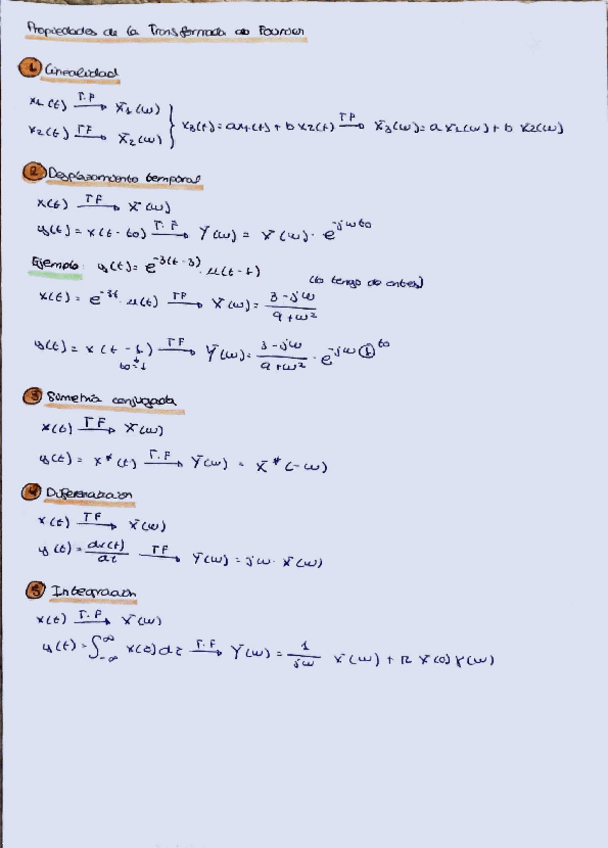 Propiedades de la Transformada de Fourier
1 Linealidad
x1(t) —T.F→ X1(ω)
x2(t) —TF→ X2(ω) } x3(t) = ax1(t) + bx2(t) —TF→ X3(ω) = a X1(ω) + b X2(ω)
2 Desplazamiento temporal
x(t) —TF→ X(ω)
y(t) = x(t - to) —T.F→ Y(ω) = X(ω) · e^-jωto
Ejemplo: y(t) = e^-3(t-1) · μ(t-1)
(lo tengo de antes)
x(t) = e^-3t · μ(t) —TF→ X(ω) = 3 - jω / 9 + ω²
y(t) = x(t - 1) —TF→ Y(ω) = 3 - jω / 9 + ω² · e^-jω① to
to = 1
3 Simetría conjugada
x(t) —TF→ X(ω)
y(t) = x*(t) —T.F→ Y(ω) = X*(-ω)
4 Diferenciación
x(t) —TF→ X(ω)
y(t) = dx(t) / dt —TF→ Y(ω) = jω · X(ω)
5 Integración
x(t) —T.F→ X(ω)
y(t) = ∫_-∞^∞ x(τ) dτ —T.F→ Y(ω) = 1 / jω X(ω) + π X(0) γ(ω)